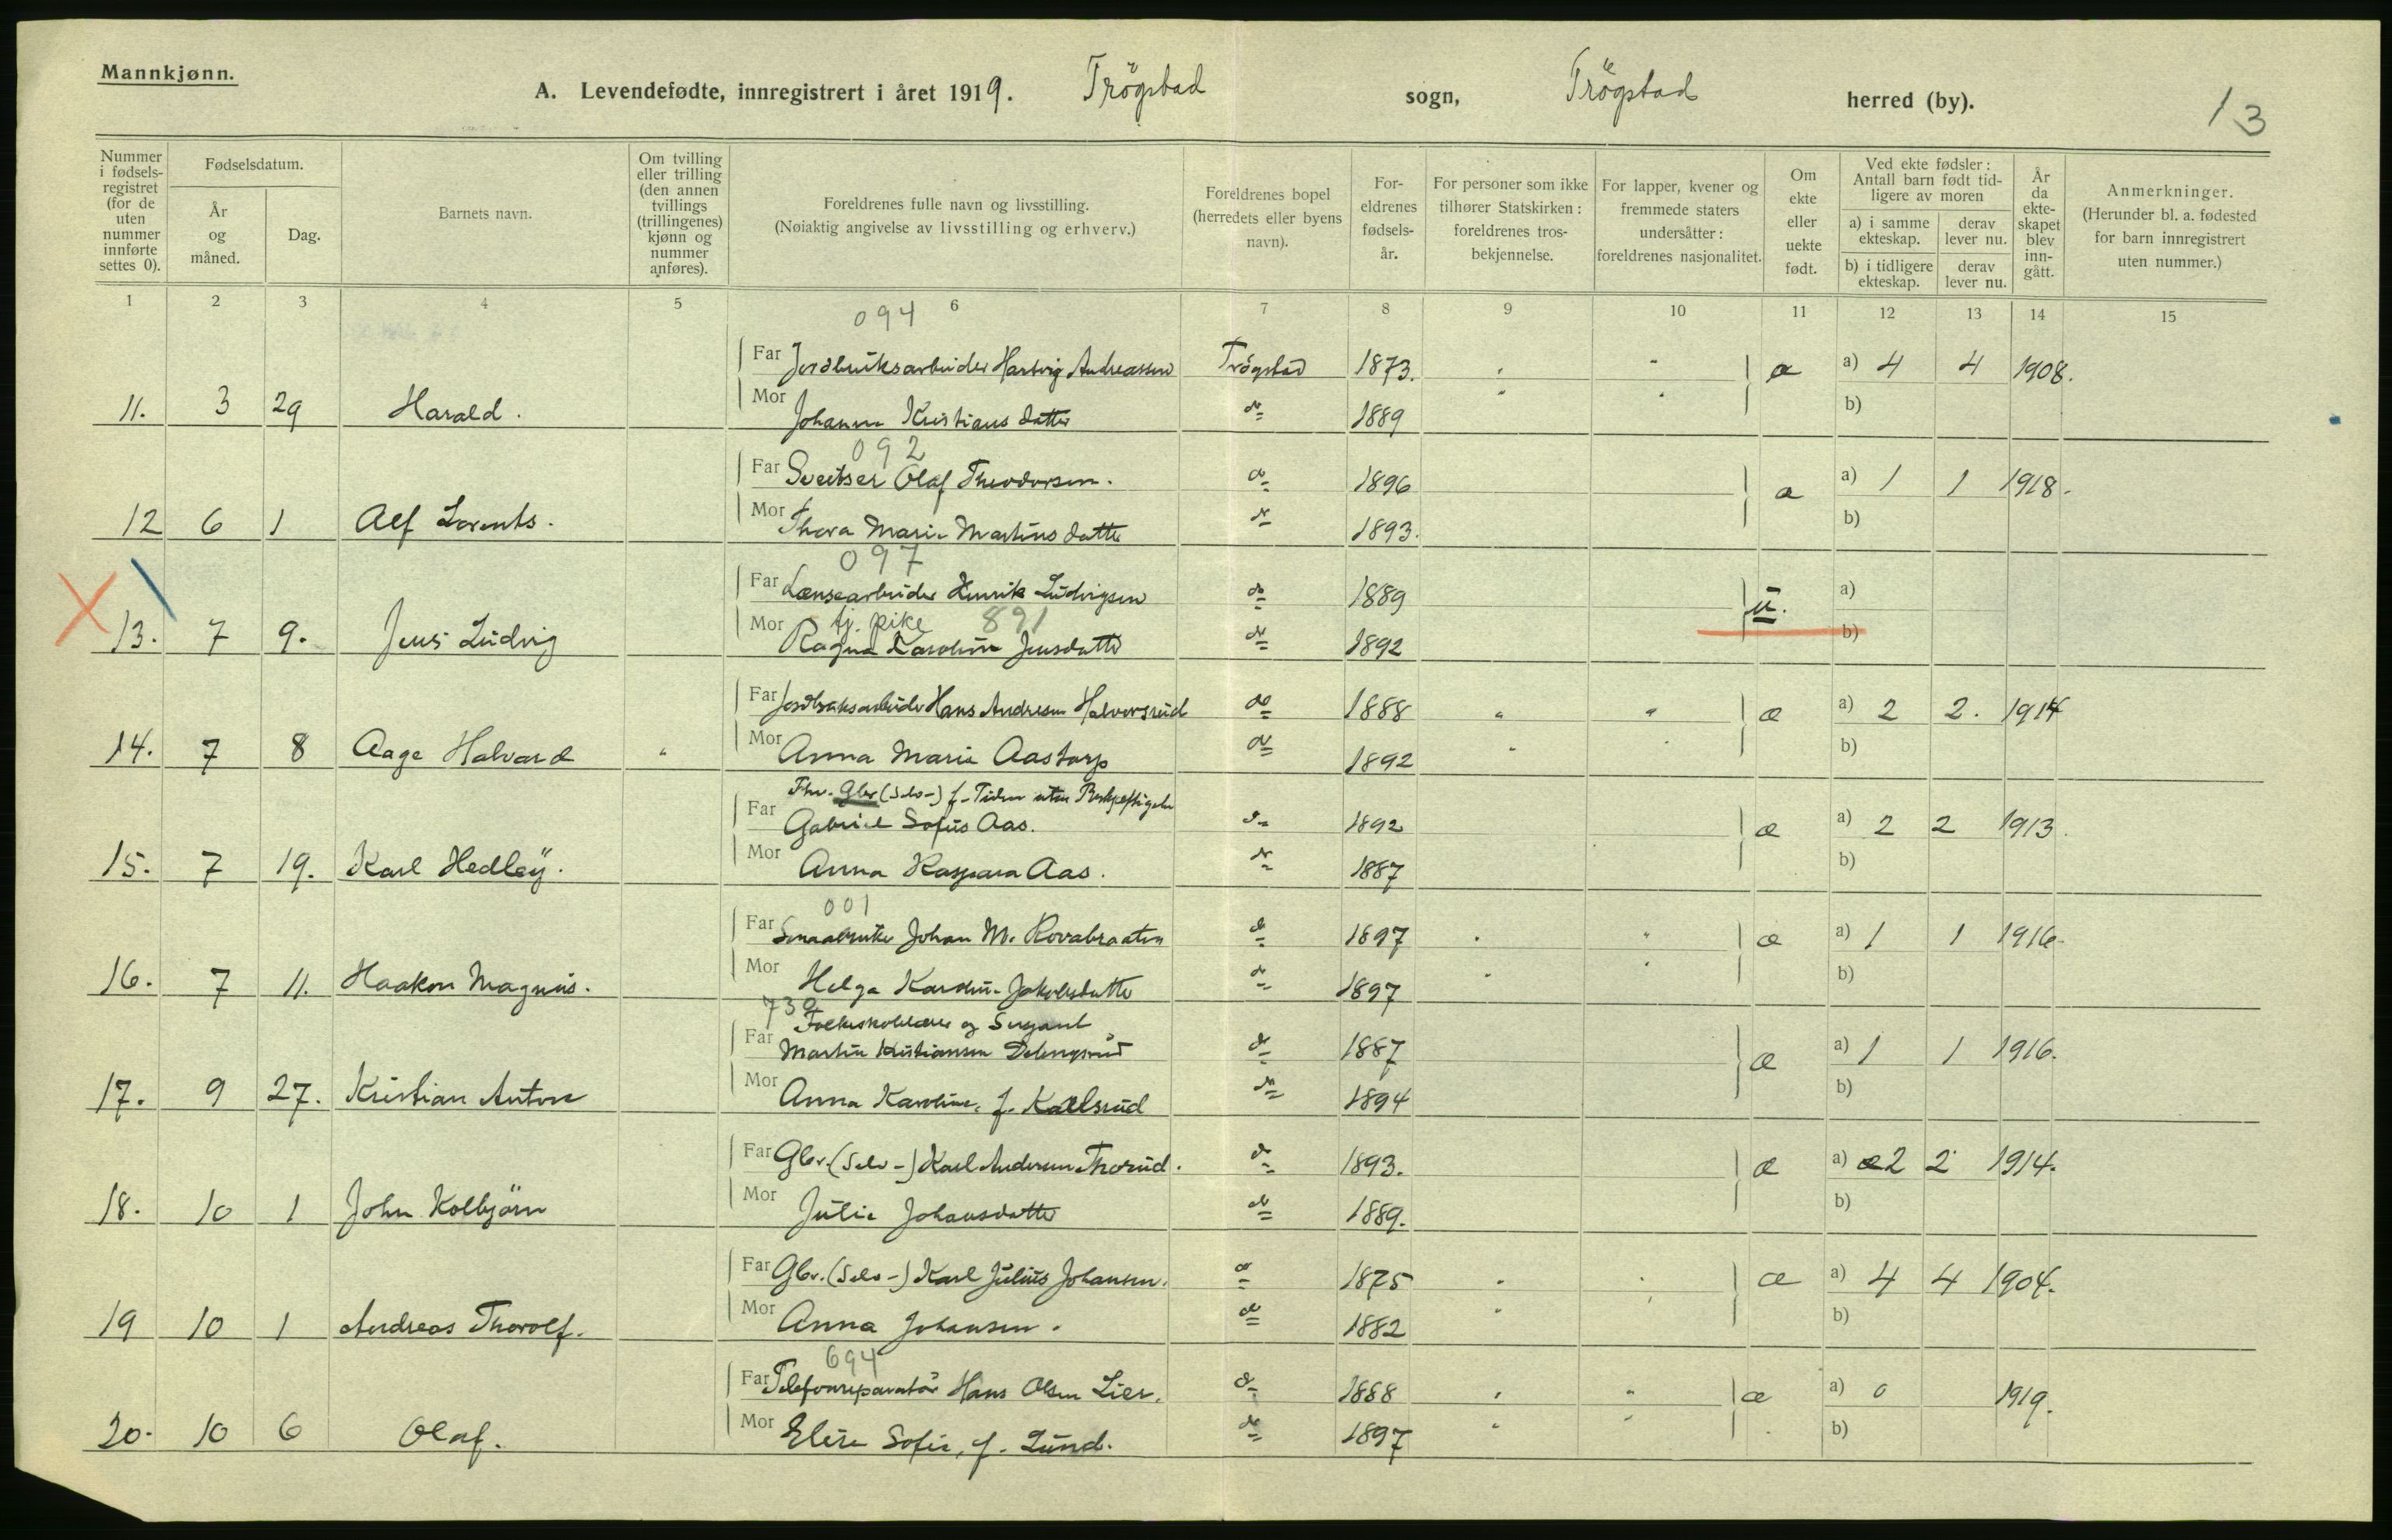 Mannkjønn.
A. Levendefødte, innregistrert i året 1919. Trögstad sogn, Trögstad herred (by).
13
Nummer i fødsels-registret (for de uten nummer innførte settes 0).
Fødselsdatum.
År og måned.
Dag.
Barnets navn.
Om tvilling eller trilling (den annen tvillings (trillingenes) kjønn og nummer anføres).
Foreldrenes fulle navn og livsstilling.
(Nøiaktig angivelse av livsstilling og erhverv.)
Foreldrenes bopel (herredets eller byens navn).
For-eldrenes fødsels-år.
For personer som ikke tilhører Statskirken: foreldrenes tros-bekjennelse.
For lapper, kvener og fremmede staters undersåtter: foreldrenes nasjonalitet.
Om ekte eller uekte født.
Ved ekte fødsler: Antall barn født tid-ligere av moren
a) i samme ekteskap.
derav lever nu.
b) i tidligere ekteskap.
derav lever nu.
År da ekte-skapet blev inn-gått.
Anmerkninger.
(Herunder bl. a. fødested for barn innregistrert uten nummer.)
1 2 3 4 5 6 7 8 9 10 11 12 13 14 15
094
Far Jordbruksarbeider Hartvig Andreassen Trögstad 1873. " æ a) 4 4 1908.
11. 3 29 Harald. Mor Johanne Kristiansdatter do 1889 b)
092
Far Sveitser Olaf Theodorsen. do 1896 æ a) 1 1 1918.
12 6 1 Alf Lorents. Mor Thora Marie Martinsdatter do 1893. b)
097
Far Lænsearbeider Henrik Ludvigsen do 1889 u. a)
tj. pike 891
13. 7 9. Jens Ludvig Mor Ragna Karoline Jensdatter do 1892 b)
Far Jordbruksarbeider Hans Andresen Halvorsrud do 1888 " " æ a) 2 2. 1914
14. 7 8 Aage Halvard " Mor Anna Marie Aastorp do 1892 b)
Fhv. Gbr (Selv-) f. Tiden uten Beskjeftigelse
Far Gabriel Sofus Aas. do 1892 æ a) 2 2 1913.
15. 7 19. Karl Hedley. Mor Anna Kaspara Aas. do 1887 b)
001
Far Smaabruker Johan M. Rovabraaten do 1897 " æ a) 1 1 1916.
16. 7 11. Haakon Magnus. Mor Helga Karoline Jakobsdatter do 1897 b)
730
Folkeskolelærer og Sersjant
Far Martin Kristiansen do 1887 æ a) 1 1 1916.
17. 9 27. Kristian Anton Mor Anna Karoline, f. Karlsrud do 1894 b)
Far Gbr. (Selv-) Karl Andersen Thorud. do 1893. æ a) 2 2 1914.
18. 10 1 John Kolbjörn Mor Julie Johansdatter do 1889. b)
Far Gbr. (Selv-) Karl Julius Johansen. do 1875 æ a) 4 4 1904.
19 10 1 Andreas Thorolf. Mor Anna Johansen. do 1882 b)
694
Far Telefonreparatör Hans Olsen Lier. do 1888 " æ a) 0 1919.
20. 10 6 Olaf. Mor Elise Sofie, f. Lund. do 1897 b)